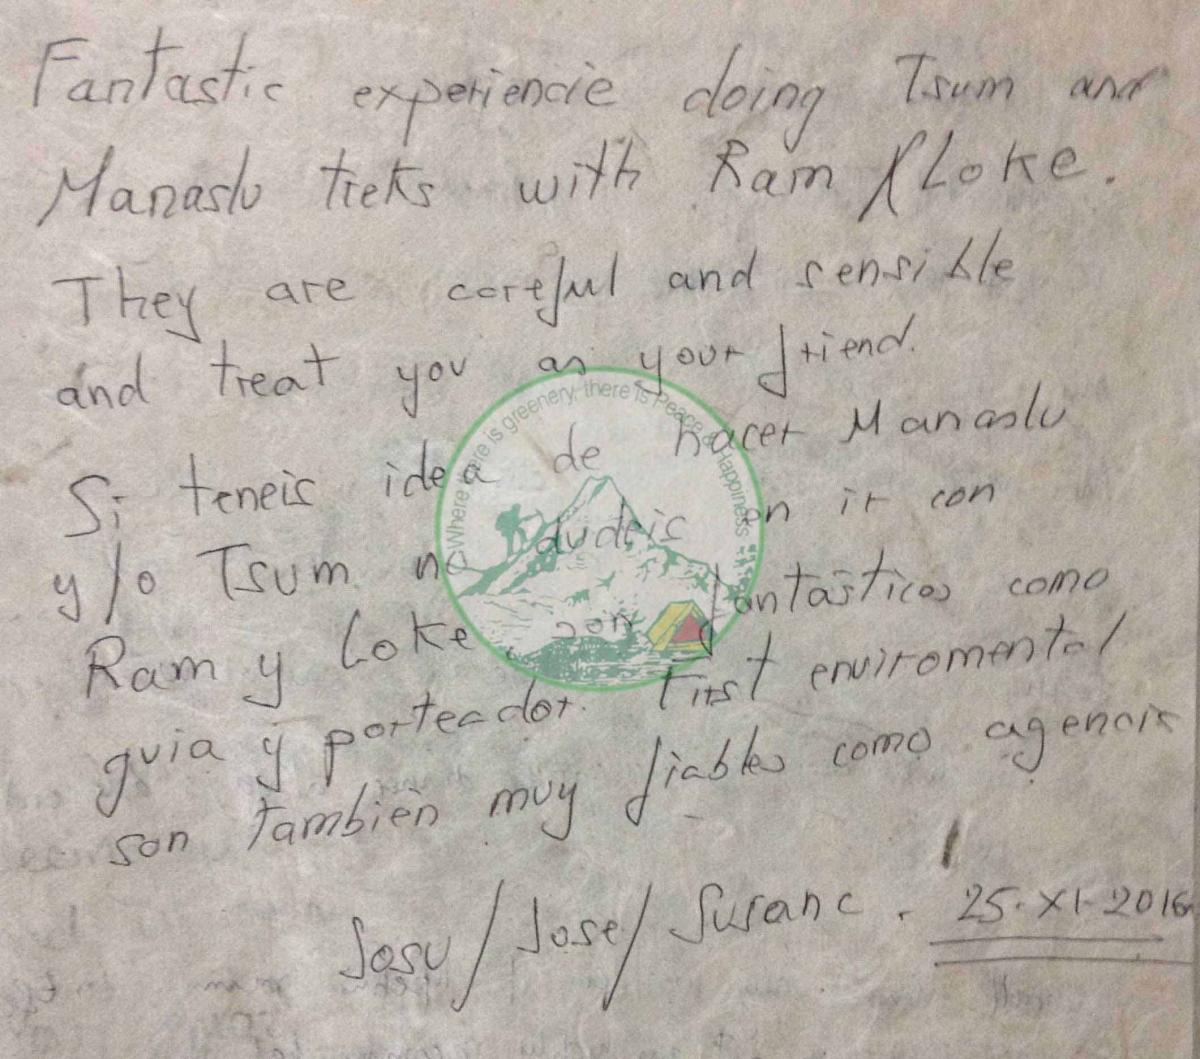 Fantastic experiencie doing Tsum and
Manaslu treks with Ram / Loke.
They are careful and sensible
and treat you as your friend.
Si teneis idea de hacer Manaslu
y/o Tsum no dudeis en ir con
Ram y Loke, son fantásticos como
guia y porteador. First enviromental
son también muy fiables como agencia
Josu / Jose / Susana. 25-XI-2016
Where there is greenery, there is Peace & Happiness